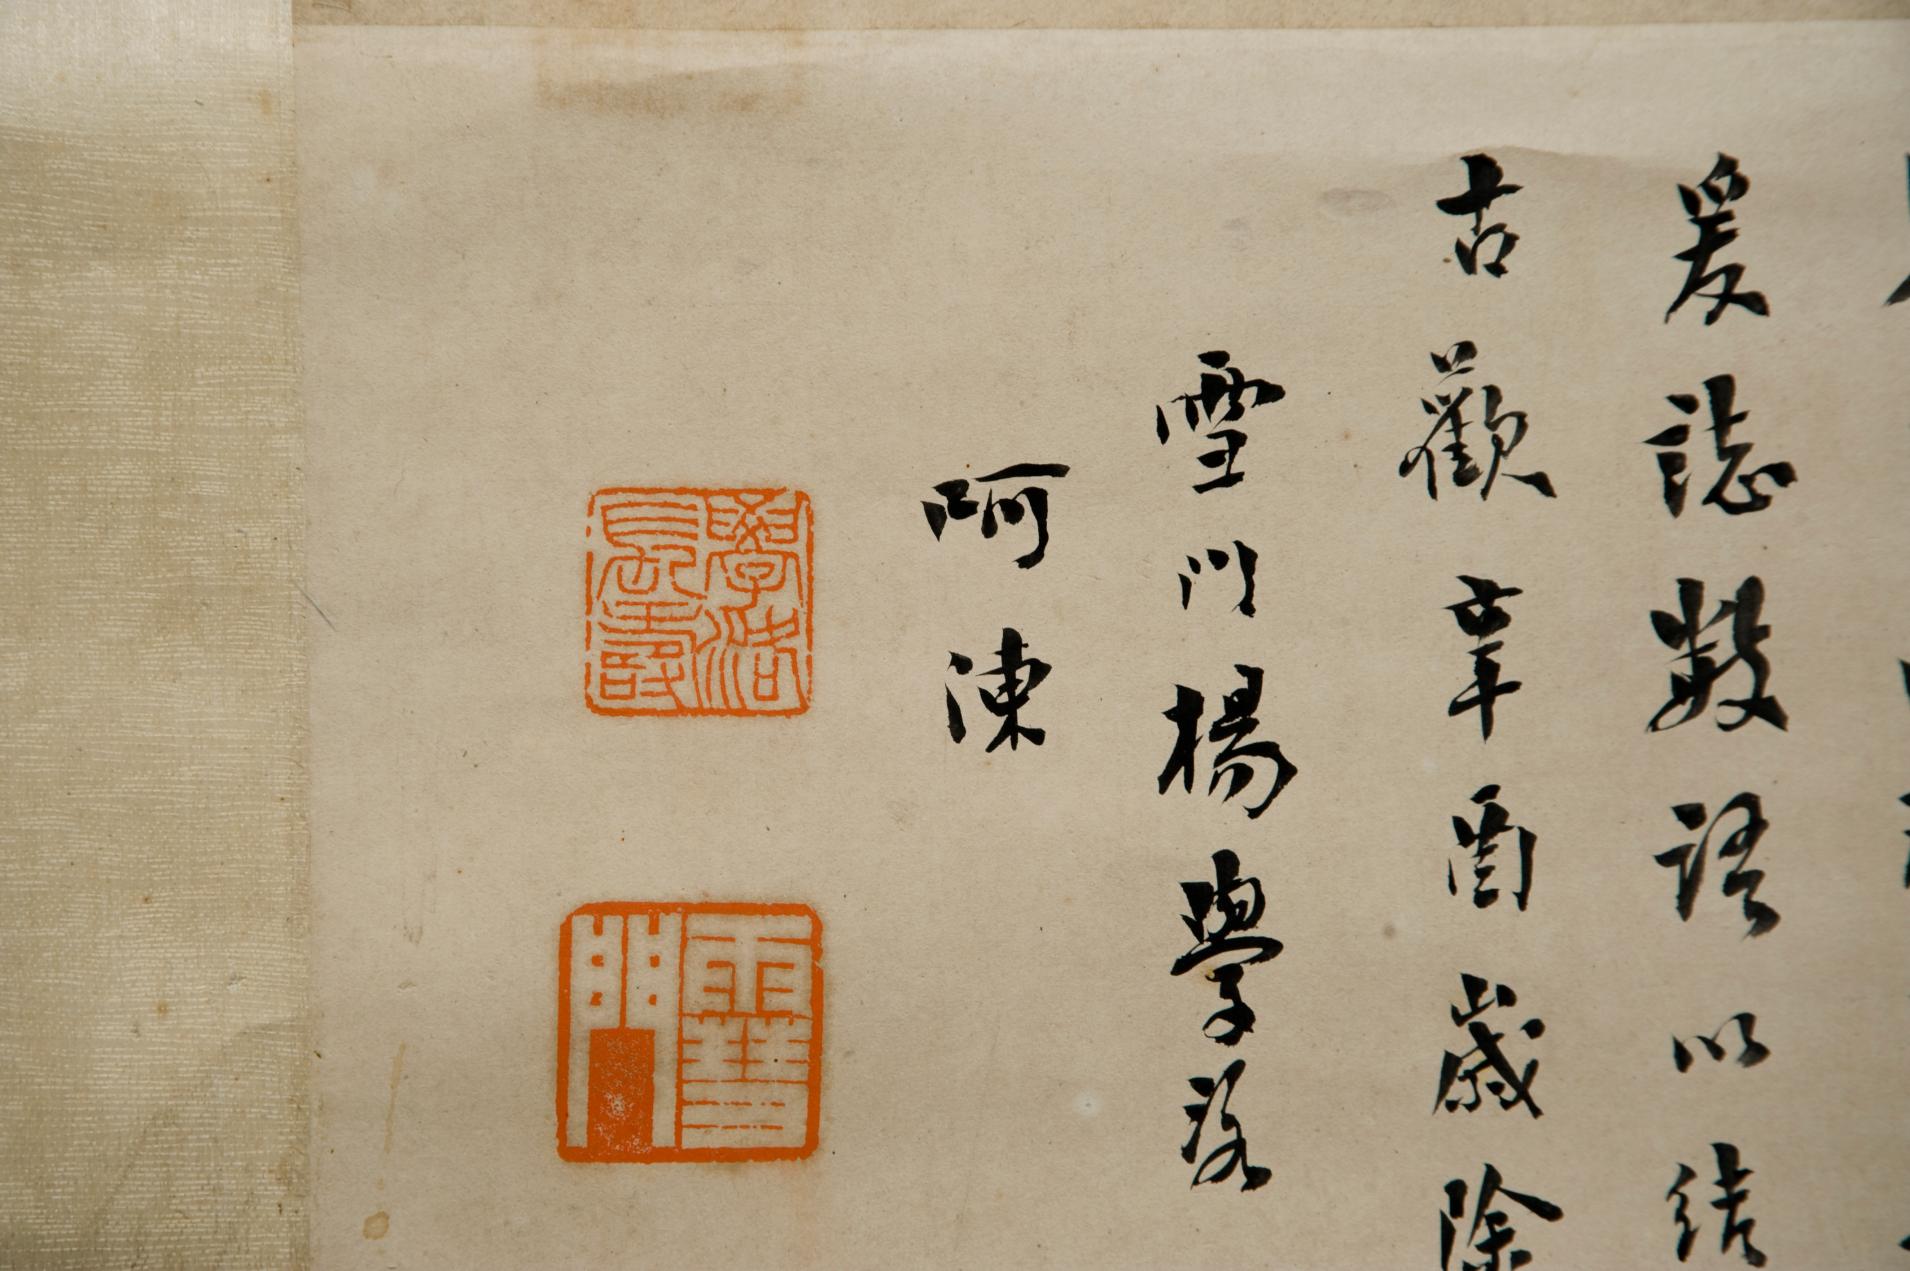 爰誌數語以結
古歡辛酉歲除
雪門楊學洛
呵凍
學洛長壽
雪門